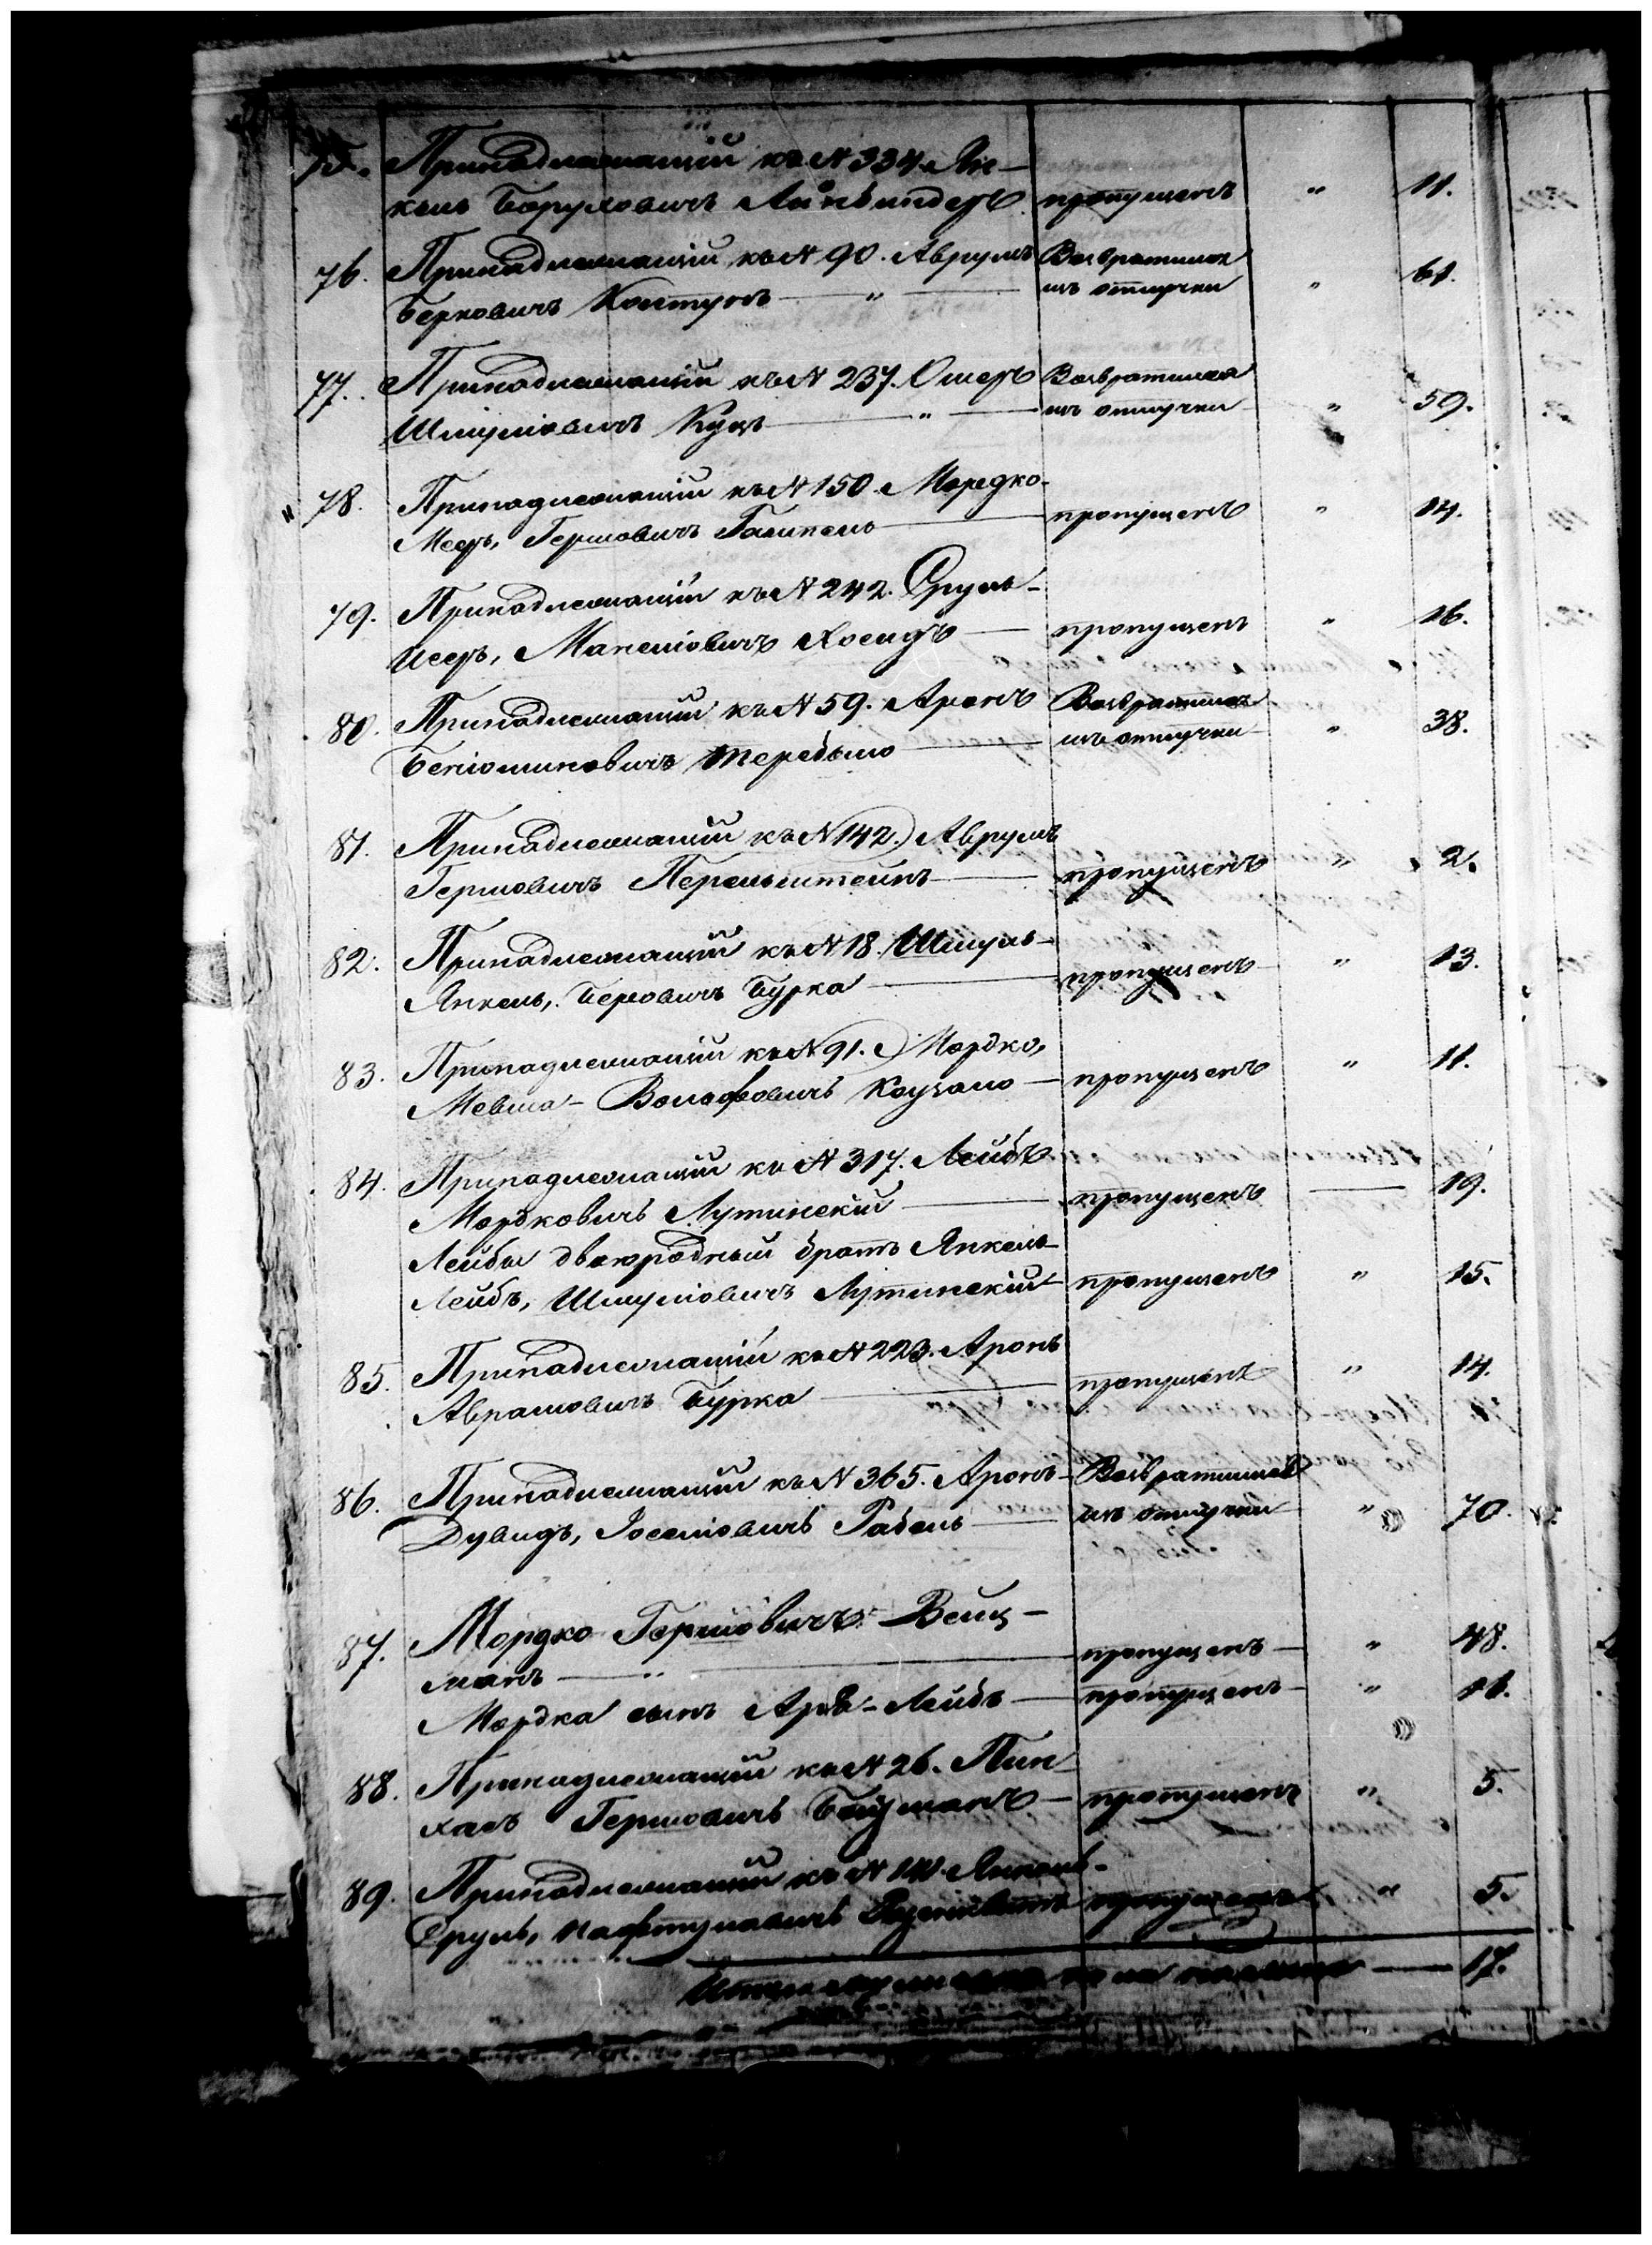 75. Принадлежащій къ N 334. Ян-
кель Боруховичъ пропущенъ " 11.
76. Принадлежащій къ N 90. Аврумъ Возвратился
Берковичъ Контунъ — " — изъ отлучки " 61.
77. Принадлежащій къ N 237. Ошеръ Возвратился
Шмуловичъ Куцъ — " — изъ отлучки " 59.
78. Принадлежащій къ N 150. Мордко-
Мееръ, Гершовичъ Гальпель — пропущенъ " 14.
79. Принадлежащій къ N 242. Сруль-
Исеръ, Манеліовичъ Хосидъ — пропущенъ " 16.
80. Принадлежащій къ N 59. Аронъ Возвратился
Беніоминовичъ Теребило — изъ отлучки " 38.
81. Принадлежащій къ N 142. Аврумъ
Гершовичъ Перельштейнъ — пропущенъ " 2.
82. Принадлежащій къ N 18. Шмуль-
Янкель, Беровичъ Бурка — пропущенъ " 13.
83. Принадлежащій къ N 91. Мордко,
Мевша- Вольфовичъ — пропущенъ " 11.
84. Принадлежащій къ N 317. Лейбъ
Мордковичъ Лутинскій — пропущенъ — 19.
Лейбы двоюродный братъ Янкель-
Лейбъ, Шмуліовичъ Лутинскій пропущенъ " 15.
85. Принадлежащій къ N 223. Аронъ
Аврамовичъ Бурка — пропущенъ " 14.
86. Принадлежащій къ N 365. Аронъ- Возвратился
Дувидъ, Іоселіовичъ Рабель — изъ отлучки " 70.
87. Мордко Гершовичъ Вейц-
манъ — " — пропущенъ — " 48.
Мордка сынъ Аръ-Лейбъ — пропущенъ — " 11.
88. Принадлежащій къ N 26. Пин-
хасъ Гершовичъ — пропущенъ " 5.
89. Принадлежащій къ N Янкель-
Сруль, Нафтуловичъ пропущенъ " 5.
Итого — 17.